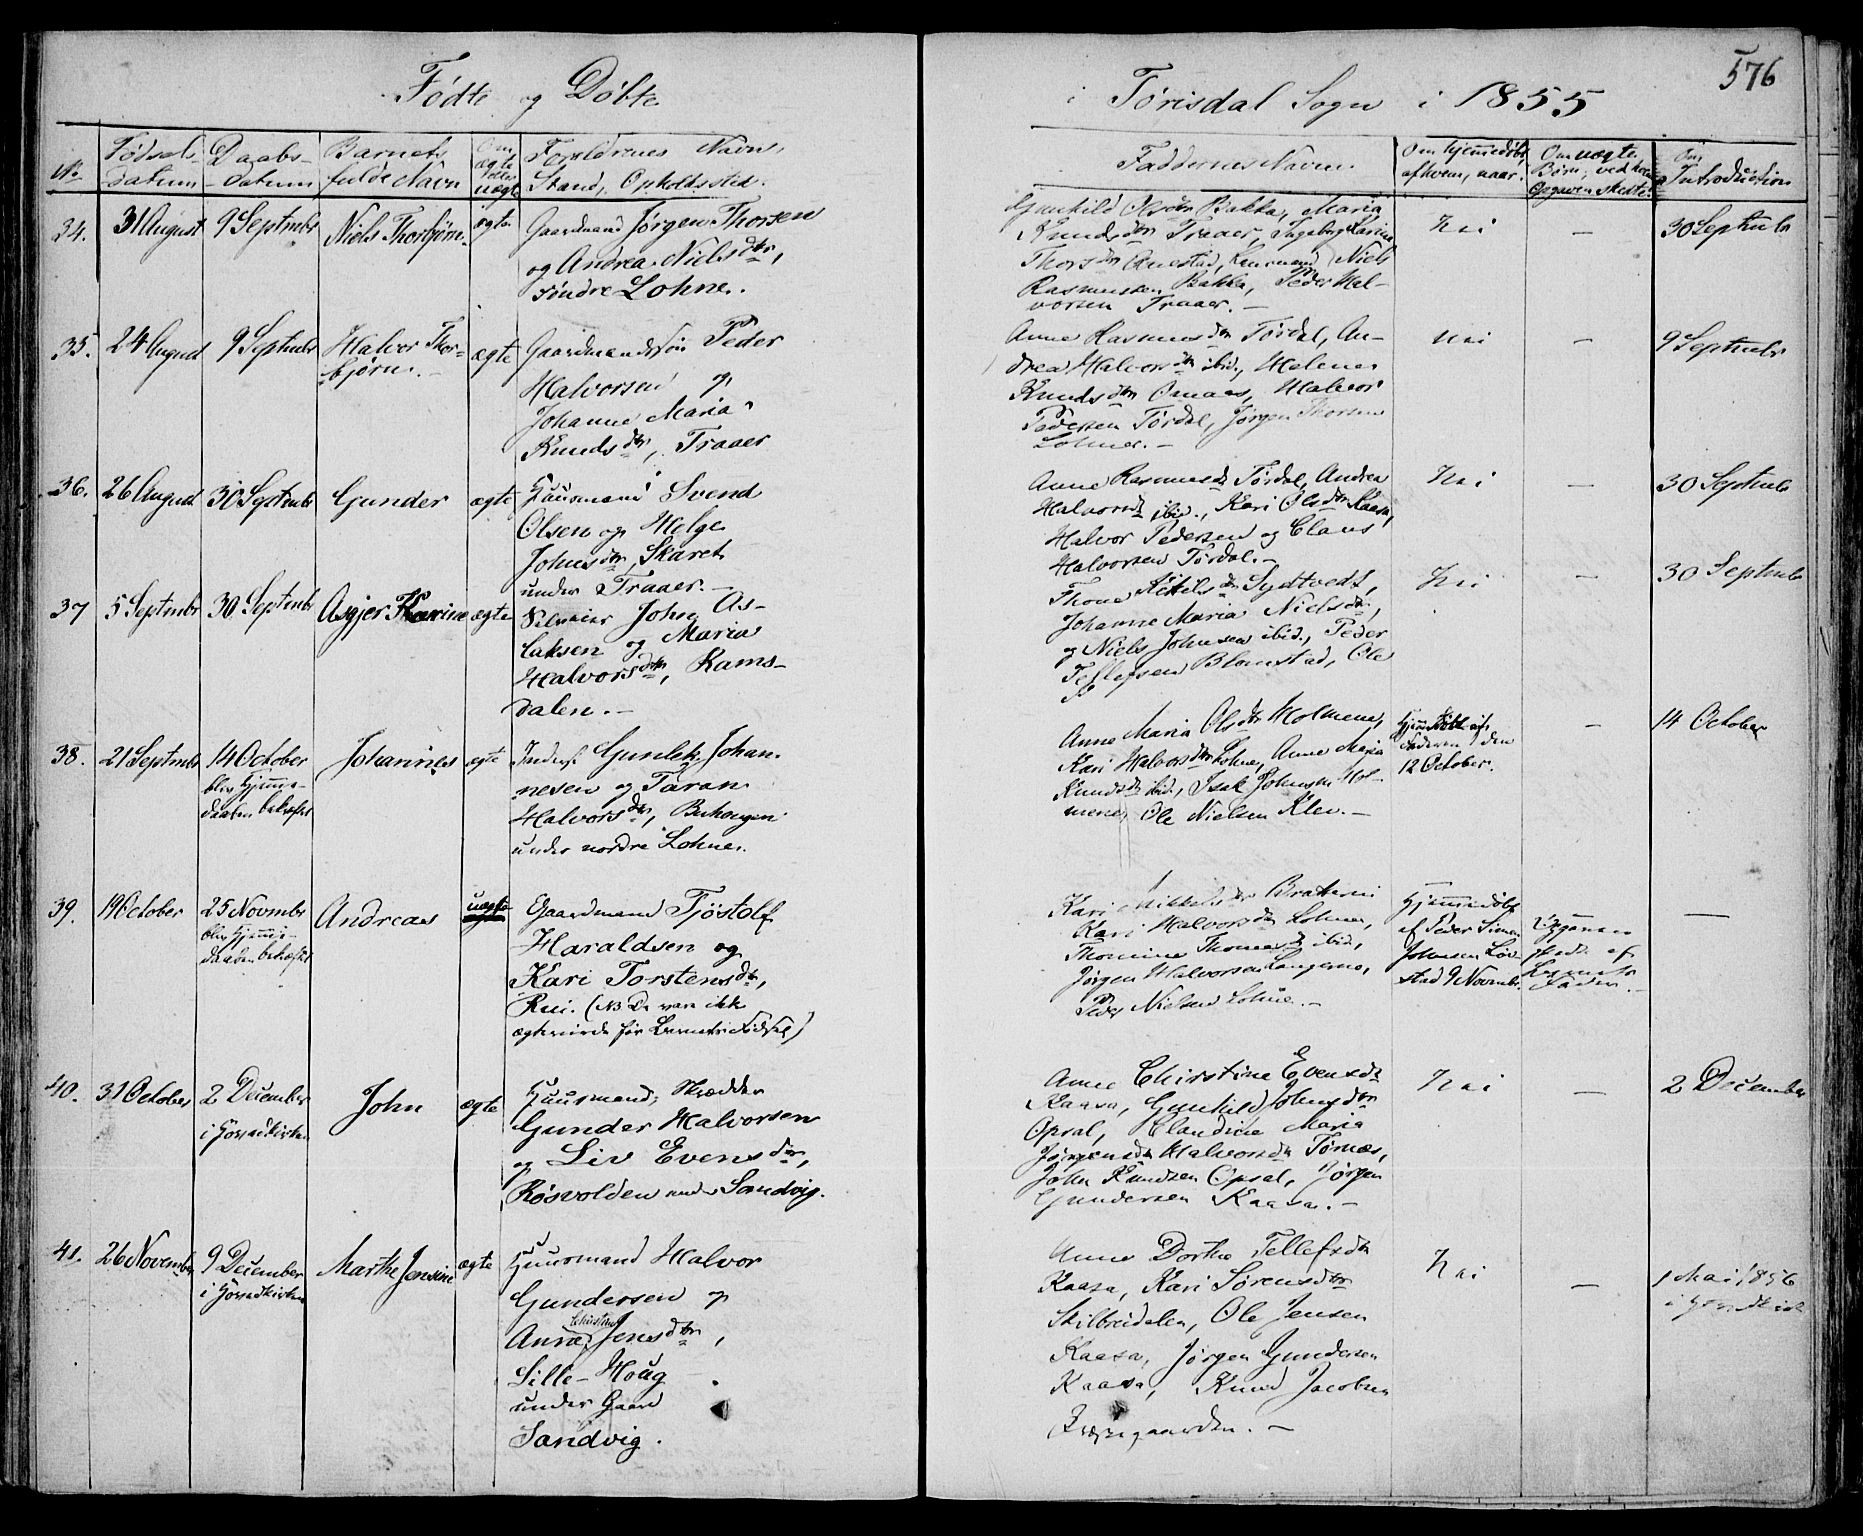 576
Fødte og Døbte
i Tørisdal Sogn i 1855
No
Fødsels-
datum
Daabs-
datum
Barnets
fulde Navn
Om
ægte
eller
uægte
Forældrenes Navn,
Stand, Opholdssted.
Faddernes Navne.
Om hjemmedøbt,
af hvem, naar.
Om uægte
Børn, ved hvem
Opgaven skedte.
Om
Introduction
34.
31 August
9 Septmbr
Niels Thorbjørn.
ægte
Gaardmand Jørgen Thorsen
og Andrea Nielsdtr,
søndre Lohne.
Gunhild Olsdtr Bakka, Maria
Knudsdtr Traaer, Ingeborg Karine
Thorsdtr Niels
Rasmussen Bakka, Peder Hal-
vorsen Traaer. –
Nei
–
30 Septmbr
35.
24 August
9 Septmbr
Halvor Thor-
bjørn. –
ægte
Gaardmandssøn Peder
Halvorsen og
Johanne Maria
Knudsdtr, Traaer
Anne Rasmusdtr Tørdal, An-
drea Halvorsdtr ibid., Helene
Knudsdtr Omaas, Halvor
Pedersen Tørdal, Jørgen Thorsen
Lohne. –
Nei
–
9 Septmbr
36.
26 August
30 Septmbr
Gunder
ægte
Huusmand Svend
Olsen og Helge
Johnsdtr, Skaret
under Traaer. –
Anne Rasmusdtr Tørdal, Andrea
Halvorsdtr ibid., Kari Olsdtr Kaasa,
Halvor Pedersen og Claus
Halvorsen Tørdal. –
Nei
–
30 Septmbr
37
5 Septmbr
30 Septmbr
Asgjer Karine
ægte
Selveier John As-
laksen og Maria
Halvorsdtr, Rams-
dalen. –
Thone Kittilsdtr Sydtvedt,
Johanne Maria Nielsdtr,
og Niels Johnsen ibid., Peder
Tellefsen Blomstad, Ole
Nei
–
30 Septmbr
38.
21 Septmbr
14 October
blev Hjemme-
daaben bekræftet
Johannes
ægte
Inderst Gunlek Johan-
nesen og Taran
Halvorsdtr, Buhougen
under nordre Lohne.
Anne Maria Olsdtr Holmene,
Kari Halvorsdtr Lohne, Anne Maria
Knudsdtr ibid., Isak Johnsen Hol-
mene, Ole Nielsen Klev. –
Hjemmedøbt af
Faderen den
12 October.
–
14 October
39.
19 October
25 Novmbr
blev Hjemme-
daaben bekræftet
Andreas
uægte
Gaardmand Tjøstolf
Haraldsen og
Kari Torstensdtr,
Rui. (NB De vare ikke
ægteviede før Barnets Fødsel)
Kari Mikkelsdtr
Kari Halvorsdtr Lohne,
Thomine Thomasdtr ibid,
Jørgen Halvorsen Langemo,
Peder Nielsen Lohne. –
Hjemmedøbt
af Peder Simen
Johnsen Løv-
stad 9 Novembr.
Opgaven
skedt af
Barnets
Fader. –
–
40.
31 October
2 December
i Hovedkirken
John
ægte
Huusmand, Skrædder
Gunder Halvorsen
og Liv Evensdtr,
Røsvolden under Sandvig.
Anne Chirstine Evensdtr
Kaasa, Gunhild Johnsdtr
Opsal, Claudine Maria
Jørgensdtr Halvorsdtr Tørnæs,
John Knudsen Opsal, Jørgen
Gundersen Kaasa. –
Nei
–
2 December
41.
26 Novembr
9 December
i Hovedkirken
Marthe Jensine
ægte
Huusmand Halvor
Gundersen og
Christine
Anne Jensdtr,
Lille-Houg
under Gaard
Sandvig.
Anne Dorthe Tellefsdtr
Kaasa, Kari Sørensdtr
Skilbreidalen, Ole Jensen
Kaasa, Jørgen Gundersen
Kaasa, Knud Jacobsen
Præstegaarden. –
Nei
–
1 Mai 1856
i Hovedkirk